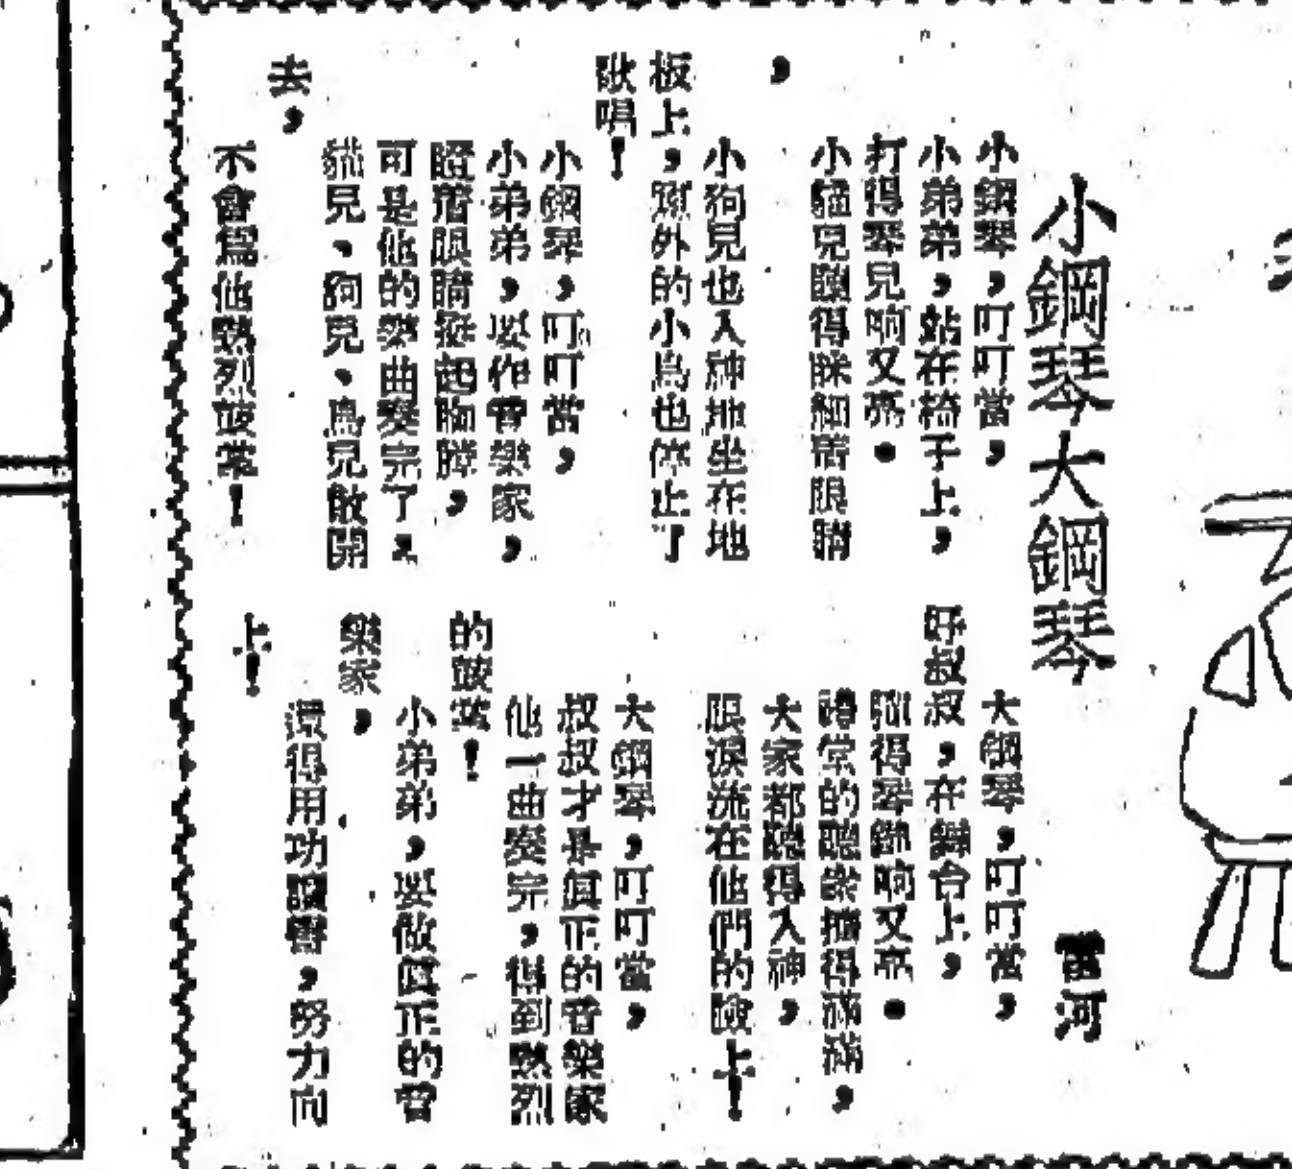 小鋼琴大鋼琴
雷河
小鋼琴,叮叮當,
小弟弟,站在椅子上,
打得琴兒响又亮。
小貓兒聽得眯細着眼睛
,
小狗兒也入神地坐在地
板上,窗外的小鳥也停止了
歌唱!
小鋼琴,叮叮當,
小弟弟,要作音樂家,
瞪着眼睛挺起胸膛,
可是他的樂曲奏完了,
貓兒、狗兒、鳥兒散開
去,
不會爲他熱烈鼓掌!
大鋼琴,叮叮當,
好叔叔,在舞台上,
彈得琴鍵响又亮。
禮堂的聽衆擠得滿滿,
大家都聽得入神,
眼淚流在他們的臉上!
大鋼琴,叮叮當,
叔叔才是真正的音樂家
他一曲奏完,得到熱烈
的鼓掌!
小弟弟,要做真正的音
樂家,
還得用功讀書,努力向
上!